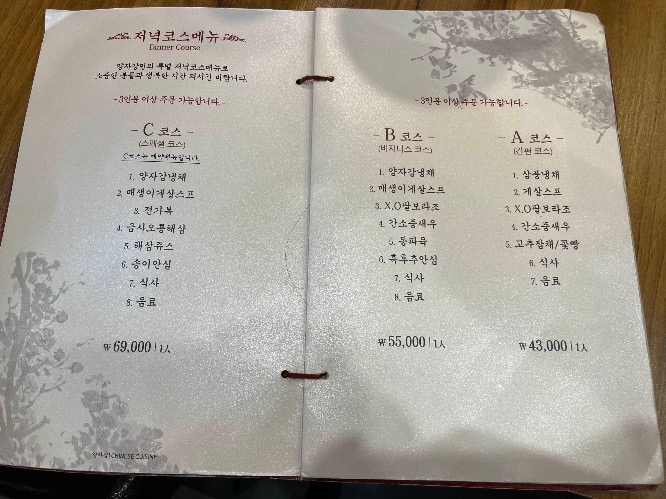 저녁코스메뉴
Danner Course
양자강만의 특별 저녁코스메뉴로
소중한 분들과 행복한 시간 되시길 바랍니다.
- 3인분 이상 주문 가능합니다. -
- C 코스 -
(스페셜 코스)
C코스는 예약메뉴입니다.
1. 양자강냉채
2. 매생이게살스프
3. 전가복
4. 금사오룡해삼
5. 해삼쥬스
6. 송이안심
7. 식사
8. 음료
₩ 69,000 | 1人
CHINESE CUISINE
- 3인분 이상 주문 가능합니다. -
- B 코스 -
(비지니스 코스)
1. 양자강냉채
2. 매생이게살스프
3. X.O팔보라조
4. 간소중새우
5. 동파육
6. 흑후추안심
7. 식사
8. 음료
₩ 55,000 | 1人
- A 코스 -
(간편 코스)
1. 삼품냉채
2. 게살스프
3. X.O팔보라조
4. 간소중새우
5. 고추잡채/꽃빵
6. 식사
7. 음료
₩ 43,000 | 1人